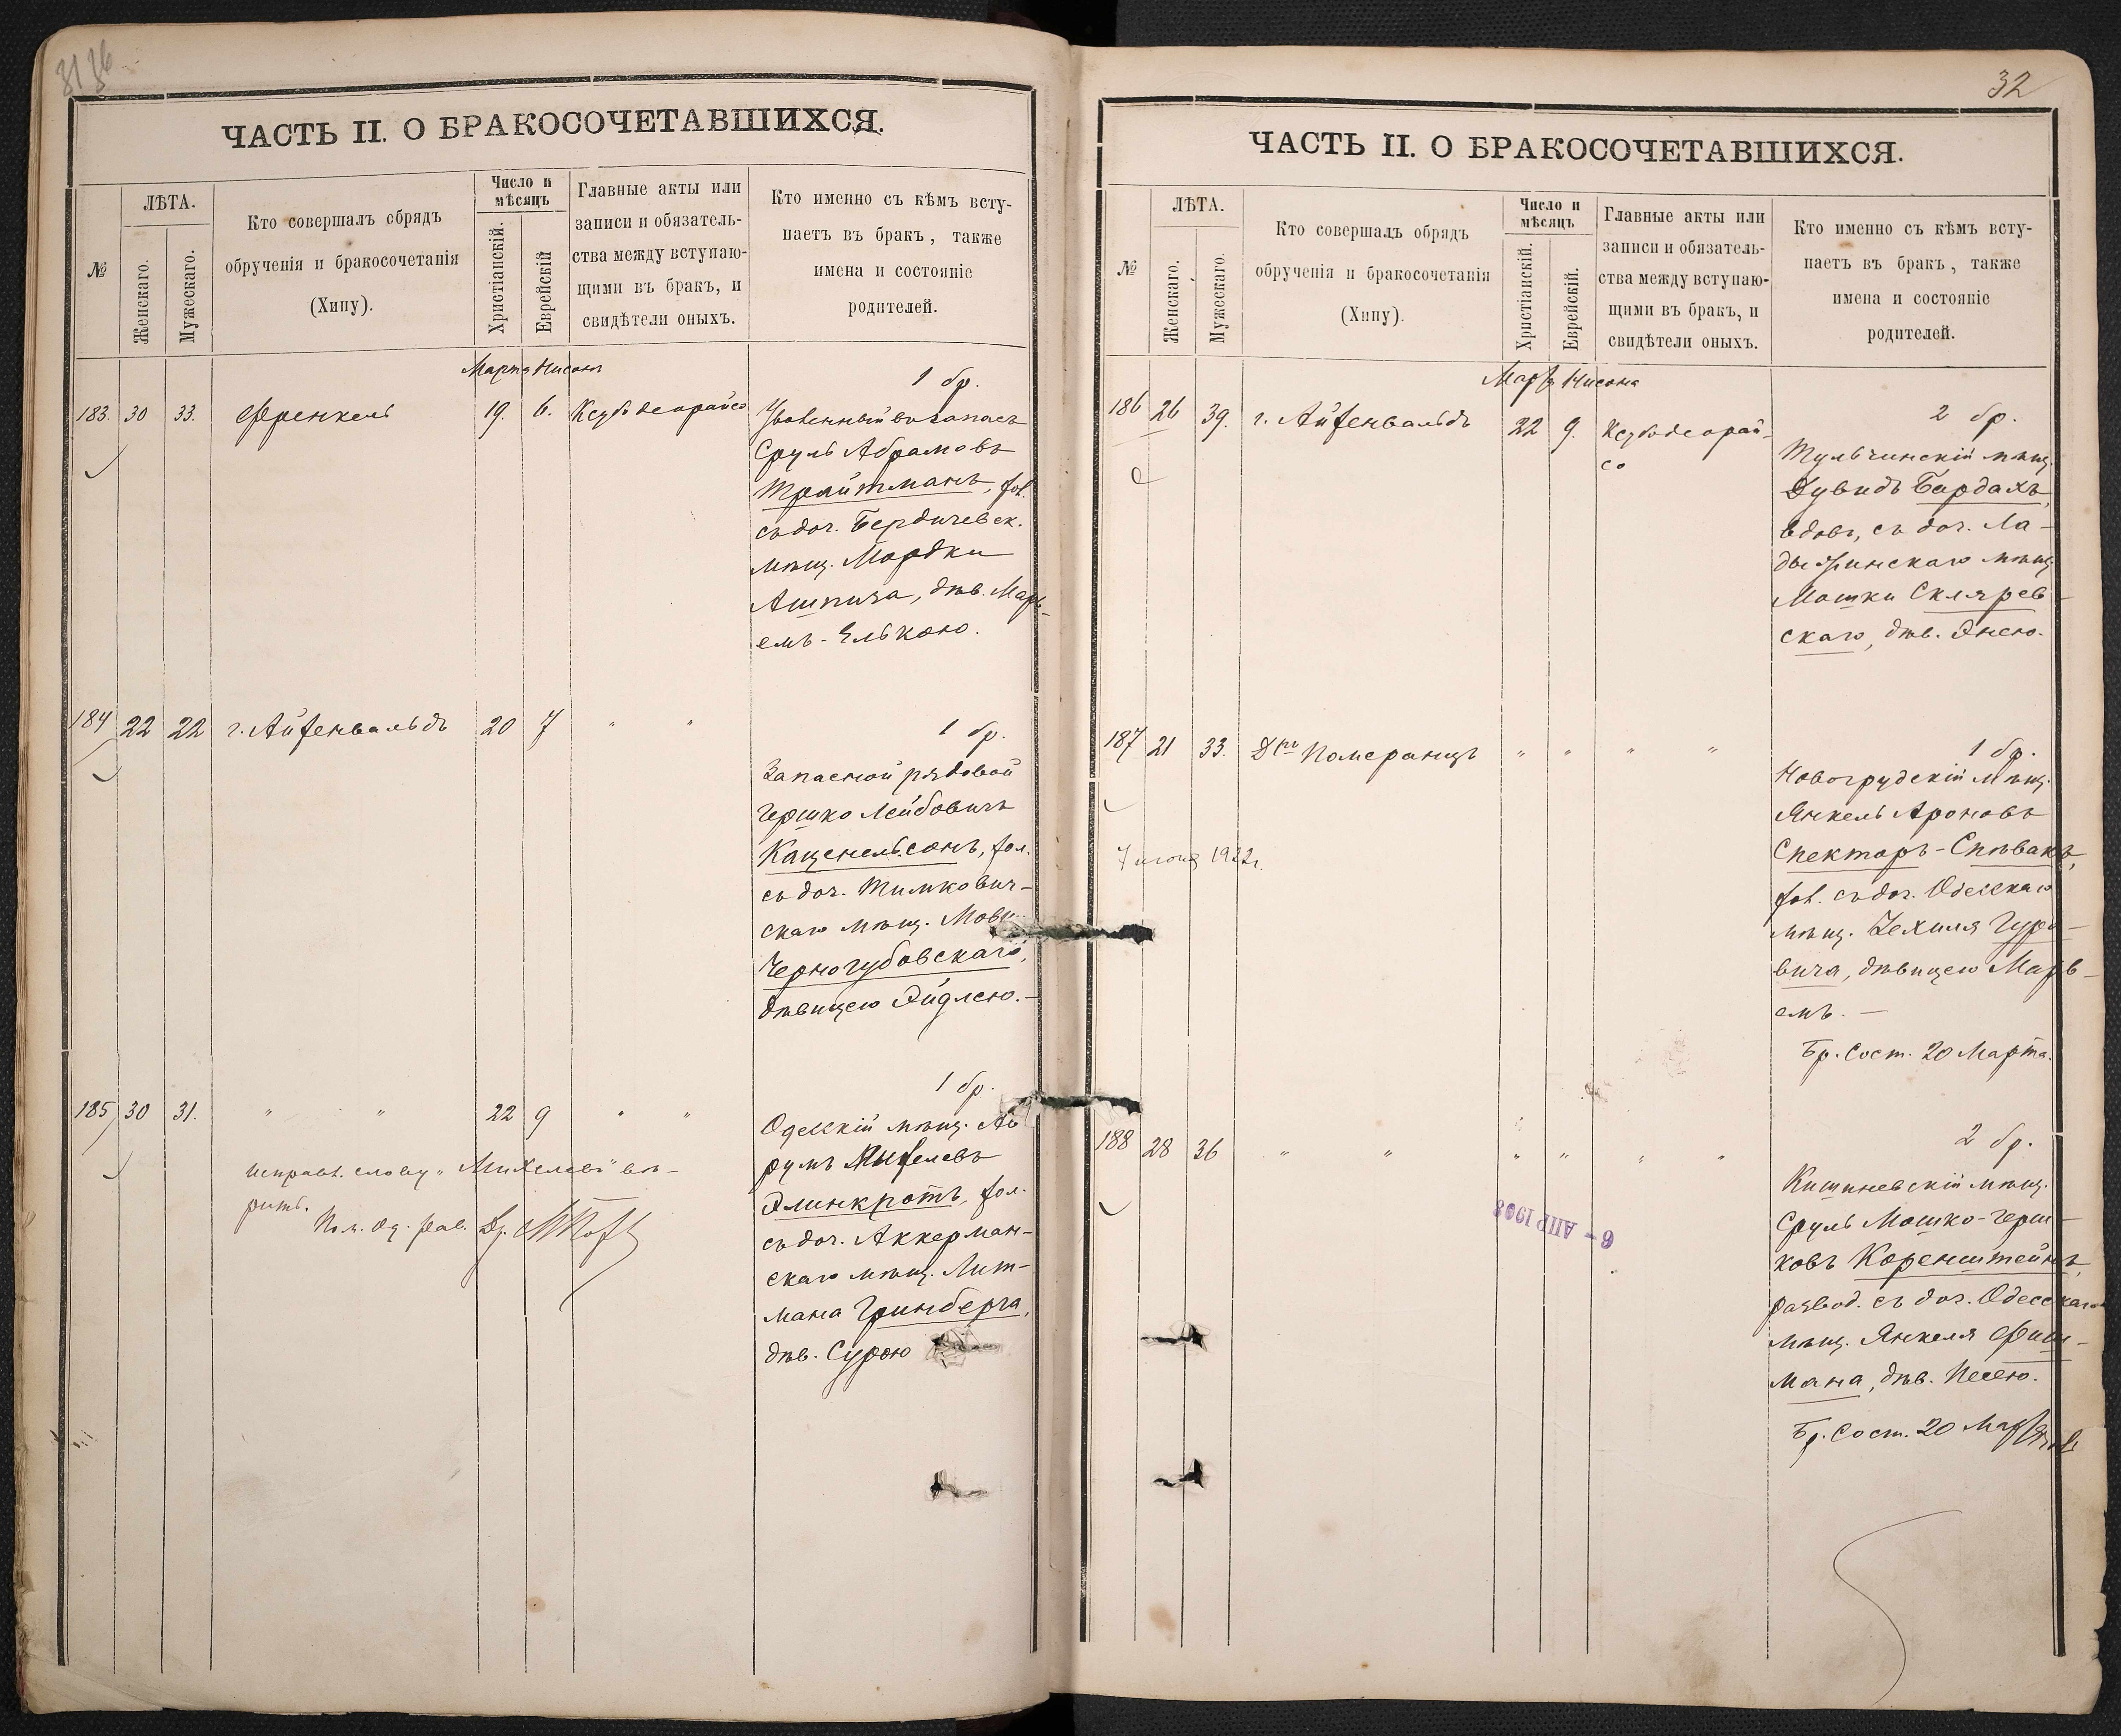 3136
ЧАСТЬ II. О БРАКОСОЧЕТАВШИХСЯ.
№
ЛѢТА.
Женскаго.
Мужескаго.
Кто совершалъ обрядъ
обрученія и бракосочетанія
(Хипу).
Число и
мѣсяцъ
Христіанскій.
Еврейскій
Главные акты или
записи и обязатель-
ства между вступаю-
щими въ бракъ, и
свидѣтели оныхъ.
Кто именно съ кѣмъ всту-
паетъ въ бракъ, также
имена и состояніе
родителей.
Марта Нисона
183. 30 33. Френкель 19. 6. Ксубо деорайсо
1 бр.
Уволенный въ запасъ
Сруль Абрамовъ
Трайтманъ, хол.
съ доч. Бердичевск.
мѣщ. Мордки
Ашпиза, дѣв. Марь-
емъ-Элькою.
184 22 22 г. Айзенвальдъ 20 7 " "
1 бр.
Запасной рядовой
Гершко Лейбовичъ
Каценельсонъ, хол.
съ доч. Тимкович-
скаго мѣщ. Мов
Черногубовскаго,
дѣвицею Эйдлею.-
185 30 31. " " 22 9 " "
1 бр.
Одесскій мѣщ. Ав
румъ Михелевъ
Элинкротъ, хол.
съ доч. Аккерман-
скаго мѣщ. Лит-
мана Гринберга,
дѣв. Сурою
исправл. слову "Михелевъ" вѣ-
рить.
Пом. Од. рав. Др.
32
ЧАСТЬ II. О БРАКОСОЧЕТАВШИХСЯ.
№
ЛѢТА.
Женскаго.
Мужескаго.
Кто совершалъ обрядъ
обрученія и бракосочетанія
(Хипу).
Число и
мѣсяцъ
Христіанскій.
Еврейскій.
Главные акты или
записи и обязатель-
ства между вступаю-
щими въ бракъ, и
свидѣтели оныхъ.
Кто именно съ кѣмъ всту-
паетъ въ бракъ, также
имена и состояніе
родителей.
Марта Нисона
186 26 39. г. Айзенвальдъ 22 9. Ксубо деорай-
со
2 бр.
Тульчинскій мѣщ.
Дувидъ Бардахъ,
вдов., съ доч. Ла-
дыжинскаго мѣщ.
Мошки Скляров-
скаго, дѣв. Энею.
187 21 33. Дръ Померанцъ " " " "
1 бр.
Новогрудскій мѣщ.
Янкель Ароновъ
Спекторъ-Спѣвакъ,
хол. съ доч. Одесскаго
мѣщ. Хехиля Гура-
вича, дѣвицею Марь-
емъ. —
Бр. сост. 20 Марта.
7 июня 1922г.
188 28 36 " " " " " "
2 бр.
Кишиневскій мѣщ.
Сруль Мошко-Герш-
ковъ Коренштейнъ,
развод. съ доч. Одесскаго
мѣщ. Янкеля Фиш-
мана, дѣв. Песею.
Бр. сост. 20 Марта
6 - АПР 1908